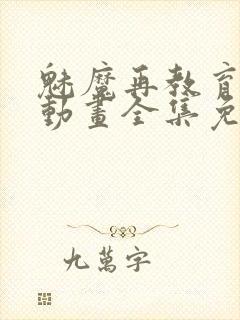 魅魔再教育
動畫全集免
九萬字